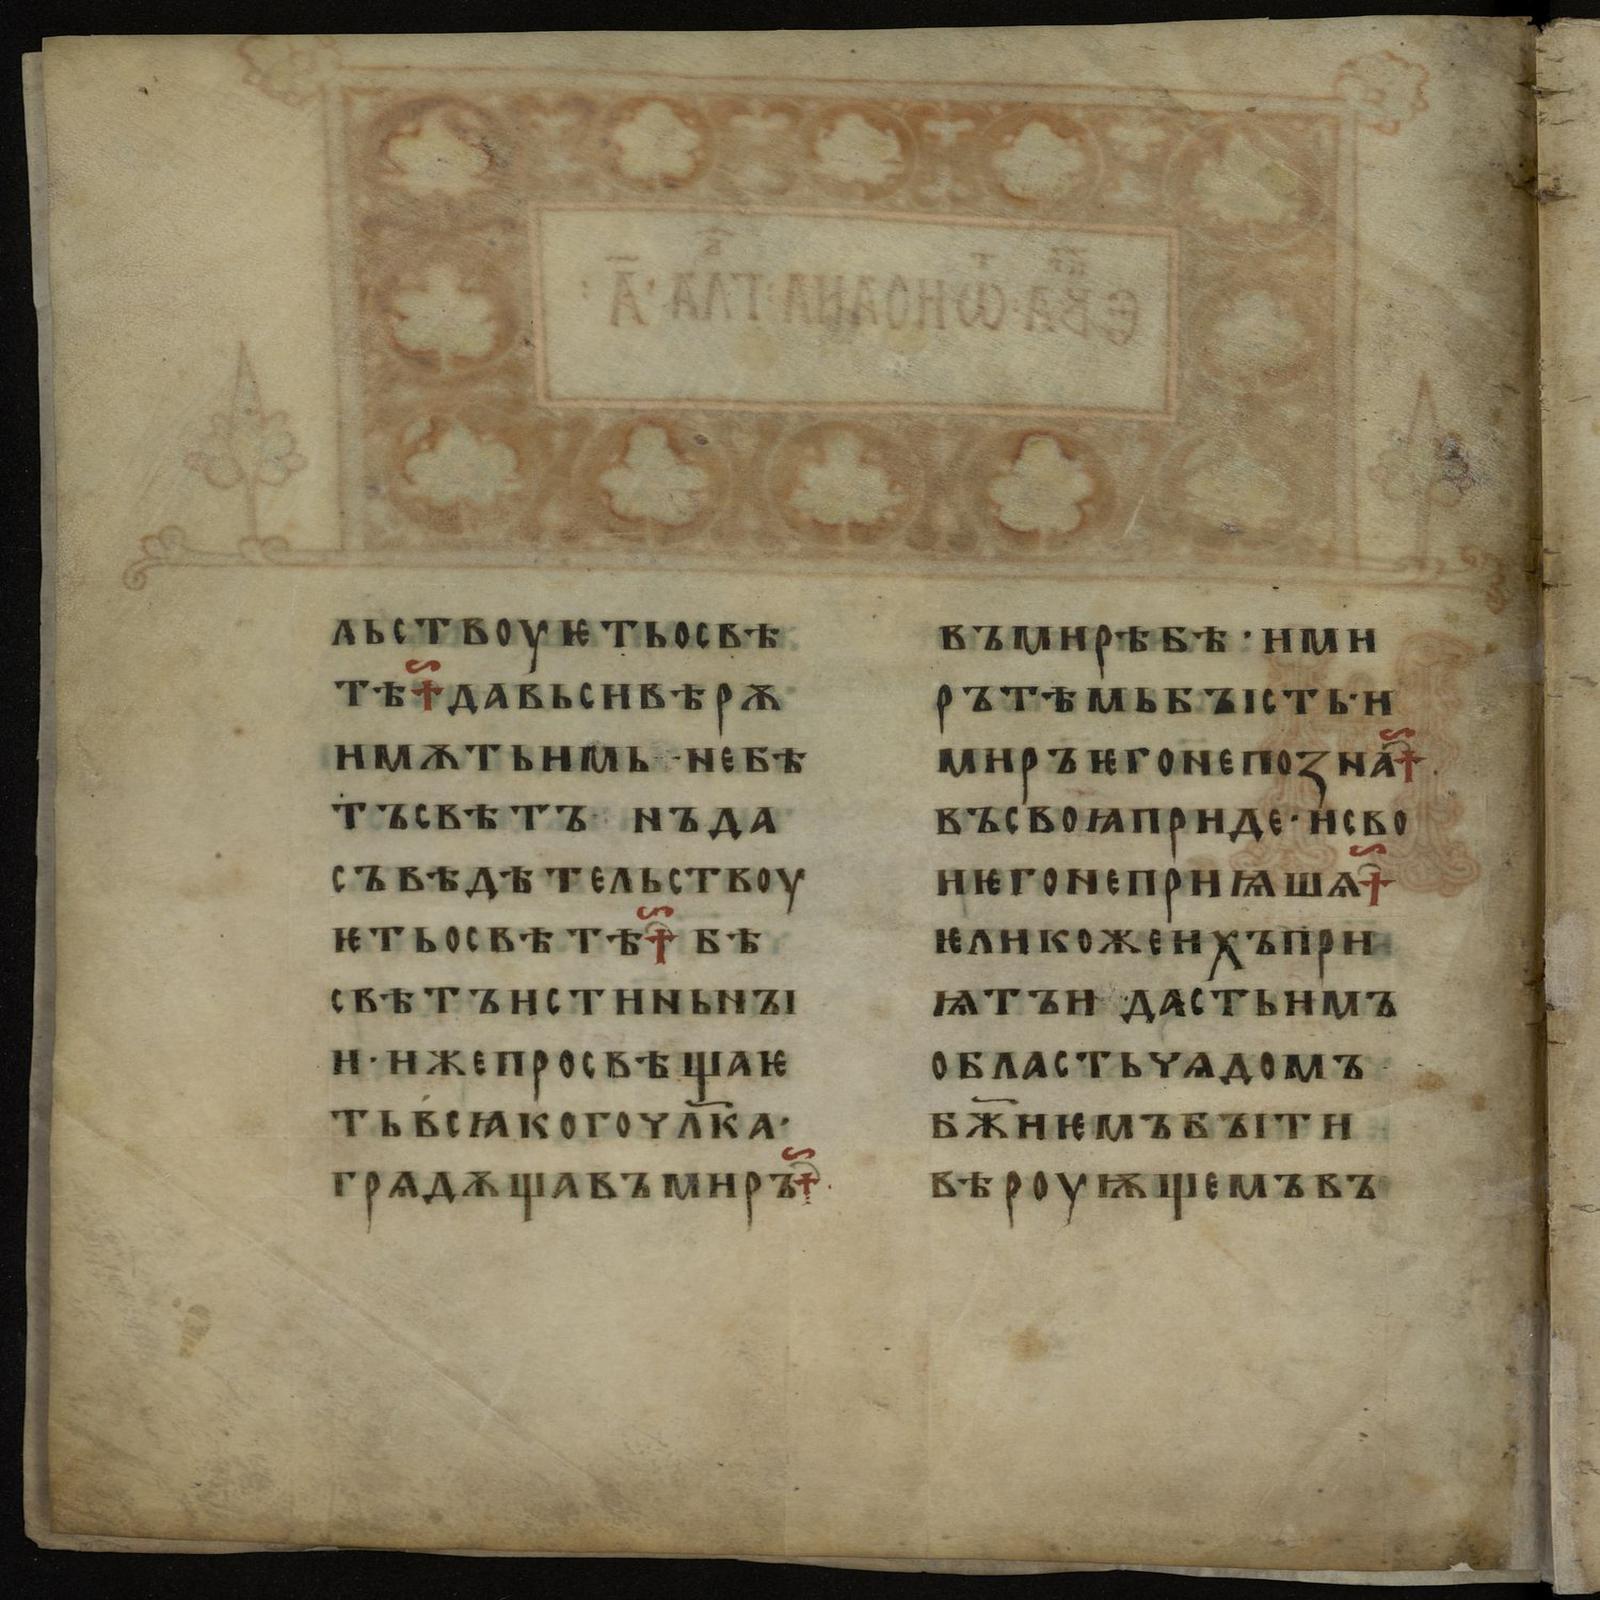 льствоуѥтьосвѣ
тѣ давьсивѣрѫ
имѫтьимь · небѣ
тъсвѣтъ · нъда
съвѣдѣтельствоу
ѥтьосвѣтѣ бѣ
свѣтъистиньнꙑ
и · ижепросвѣщаѥ
тьвсꙗкогочл҃ка ·
грѧдѫщавъмиръ
въмирѣбѣ · ими
рътѣмьбꙑсть · и
миръѥгонепозна
въсвоꙗприде · исво
иѥгонеприꙗшѧ
ѥликоженхъпри
ѩтъи дастьимъ
областьчѧдомъ
бж҃иѥмъбꙑти
вѣроуѭщемъвъ